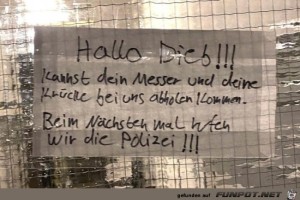 Hallo Dieb!!!
Kannst dein Messer und deine
Krücke bei uns abholen kommen.
Beim Nächsten mal rufen
wir die Polizei!!!
gefunden auf FUNPOT.NET